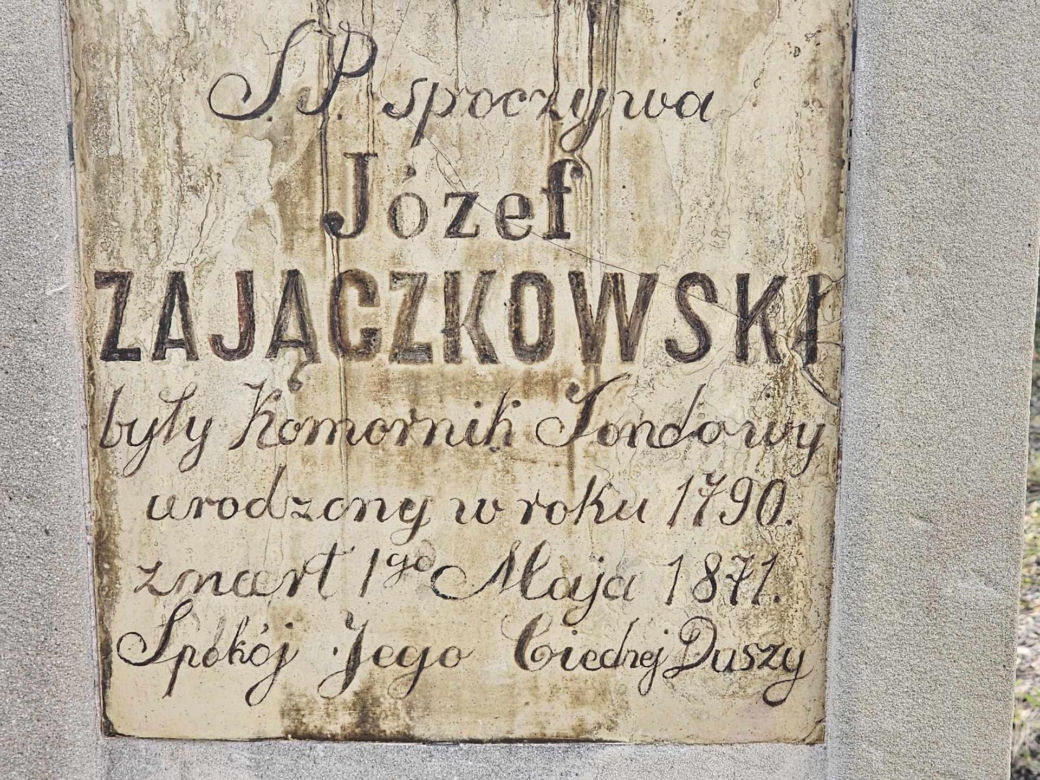 S.P. spoczywa
Józef
ZAJĄCZKOWSKI
były Komornik Sondowy
urodzony w roku 1790.
zmarł 1go Maja 1871.
Spokój Jego Biednej Duszy